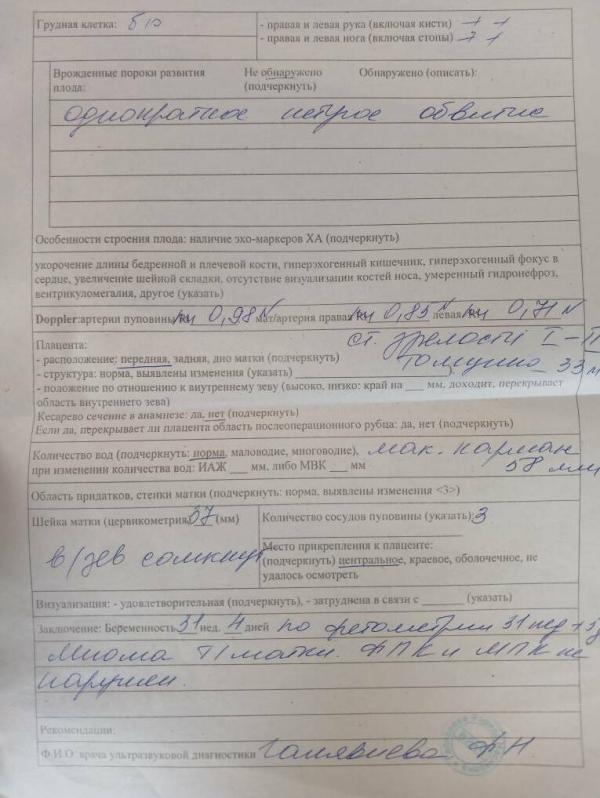 Грудная клетка: б/о
- правая и левая рука (включая кисти) + +
- правая и левая нога (включая стопы) + +
Врожденные пороки развития плода:
Не обнаружено (подчеркнуть)
Обнаружено (описать):
однократное нетугое обвитие
Особенности строения плода: наличие эхо-маркеров ХА (подчеркнуть)
укорочение длины бедренной и плечевой кости, гиперэхогенный кишечник, гиперэхогенный фокус в
сердце, увеличение шейной складки, отсутствие визуализации костей носа, умеренный гидронефроз,
вентрикуломегалия, другое (указать)
Doppler:артерии пуповины 0,98 N мат/артерия правая 0,85 N левая 0,71 N
Плацента: ст. зрелости I-II
- расположение: передняя, задняя, дно матки (подчеркнуть) толщина 33 м
- структура: норма, выявлены изменения (указать)
- положение по отношению к внутреннему зеву (высоко, низко: край на ___ мм, доходит, перекрывает
область внутреннего зева)
Кесарево сечение в анамнезе: да, нет (подчеркнуть)
Если да, перекрывает ли плацента область послеоперационного рубца: да, нет (подчеркнуть)
Количество вод (подчеркнуть: норма, маловодие, многоводие), мак. карман
при изменении количества вод: ИАЖ ___ мм, либо МВК ___ мм 58 мм
Область придатков, стенки матки (подчеркнуть: норма, выявлены изменения <3>)
Шейка матки (цервикометрия) 37 (мм)
в/зев сомкнут
Количество сосудов пуповины (указать): 3
Место прикрепления к плаценте:
(подчеркнуть) центральное, краевое, оболочечное, не
удалось осмотреть
Визуализация: - удовлетворительная (подчеркнуть), - затруднена в связи с ______ (указать)
Заключение: Беременность 31 нед. 4 дней по фетометрии 31 нед + 3
Миома матки. ФПК и МПК не
нарушен.
Рекомендации:
Ф.И.О. врача ультразвуковой диагностики